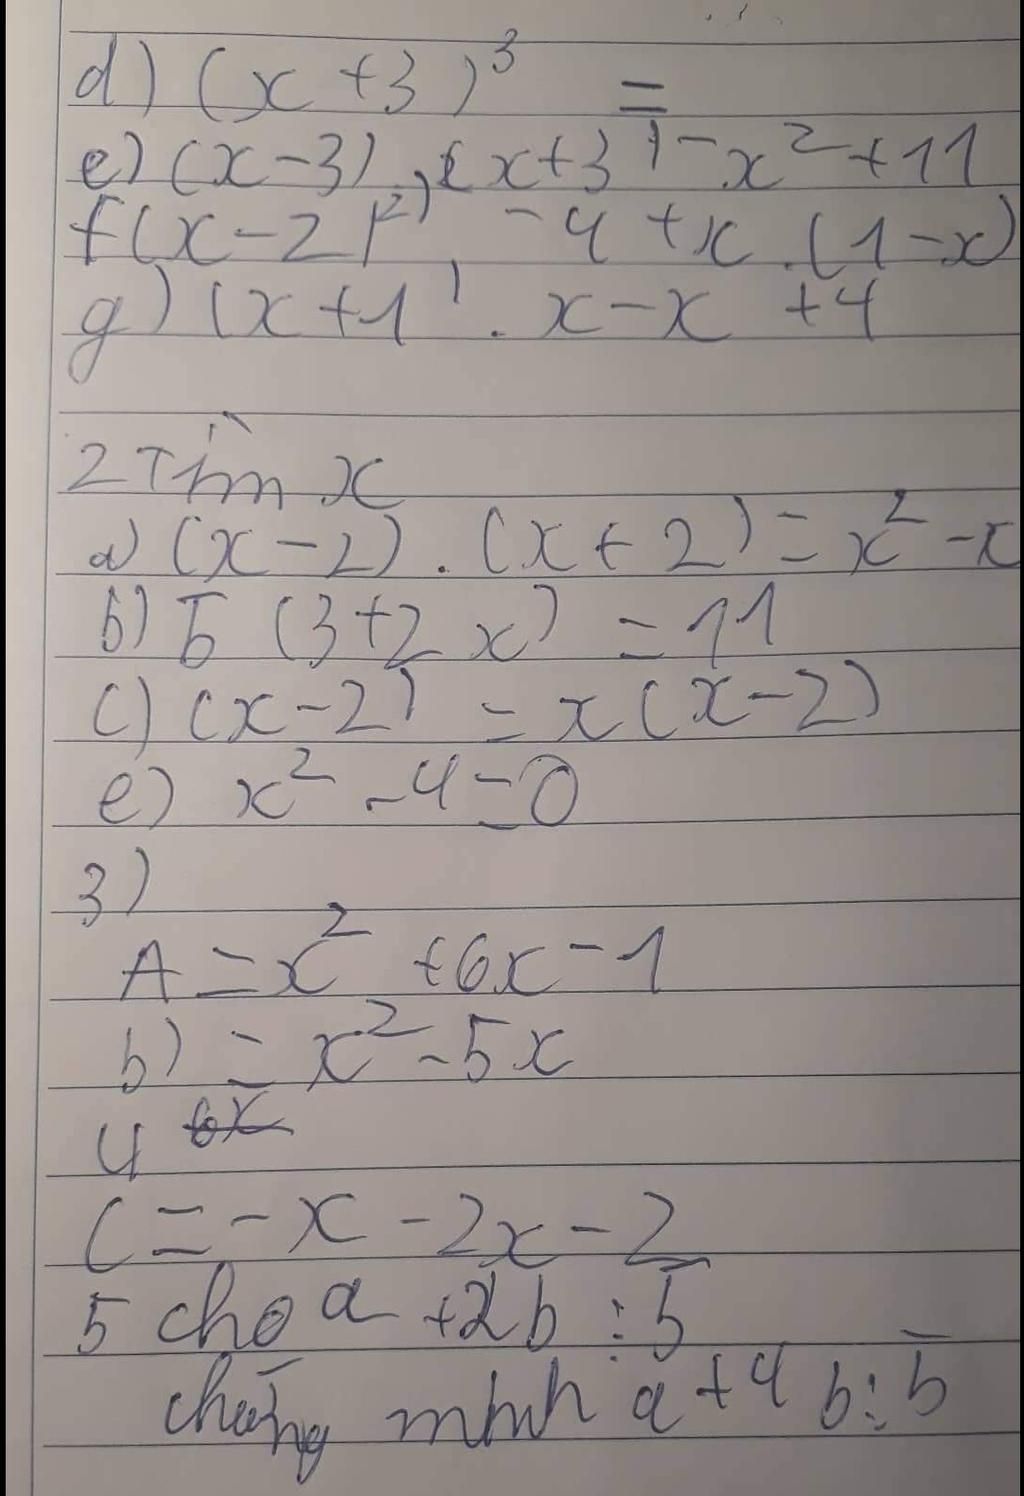 d) (x+3)³ =
e) (x-3).(x+3)-x²+11
f(x-2)² -4+x.(1-x)
g) (x+1). x-x +4
2 Tìm x
a) (x-2).(x+2)=x²-x
b) 5 (3+2x) = 11
c) (x-2) = x(x-2)
e) x²-4=0
3)
A = x² +6x-1
b) = x²-5x
4
C = -x -2x-2
5 cho a +2b ⋮ 5
chứng minh a+4b ⋮ 5